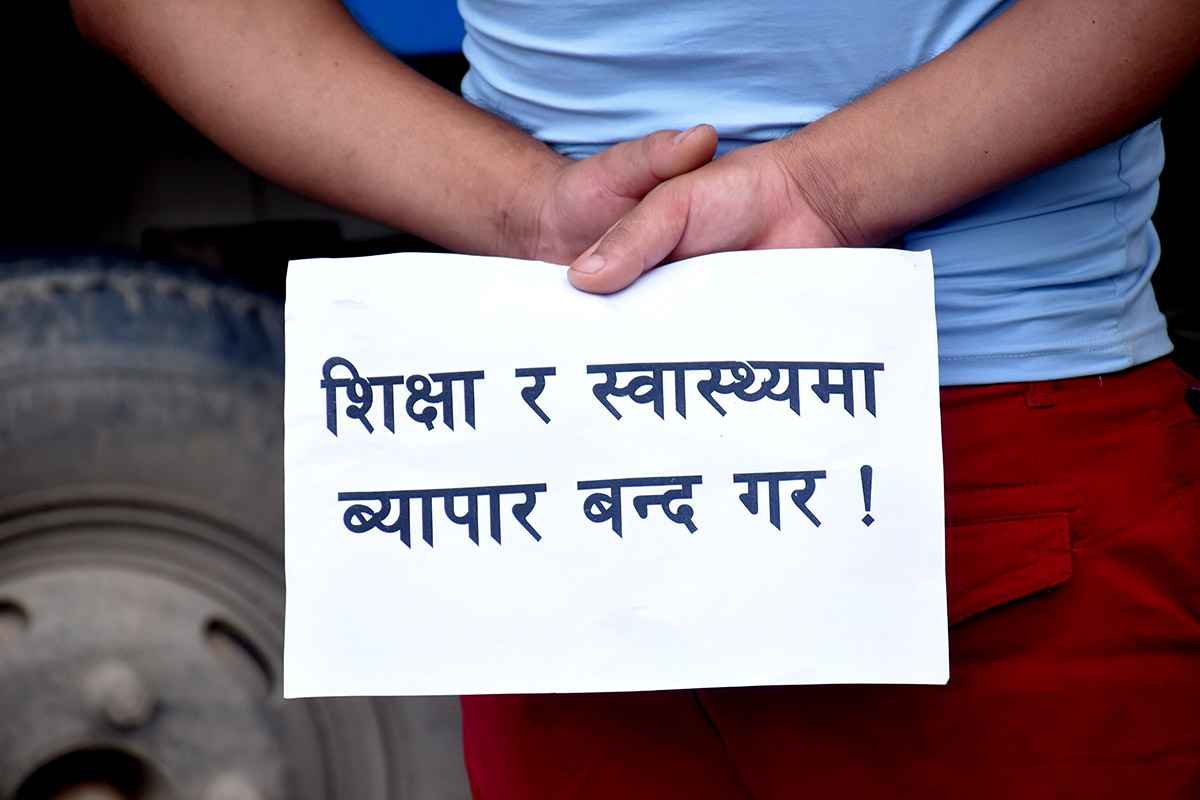 शिक्षा र स्वास्थ्यमा
ब्यापार बन्द गर !